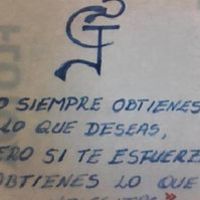 O SIEMPRE OBTIENES
LO QUE DESEAS,
ERO SI TE ESFUERZ
OBTIENES LO QUE